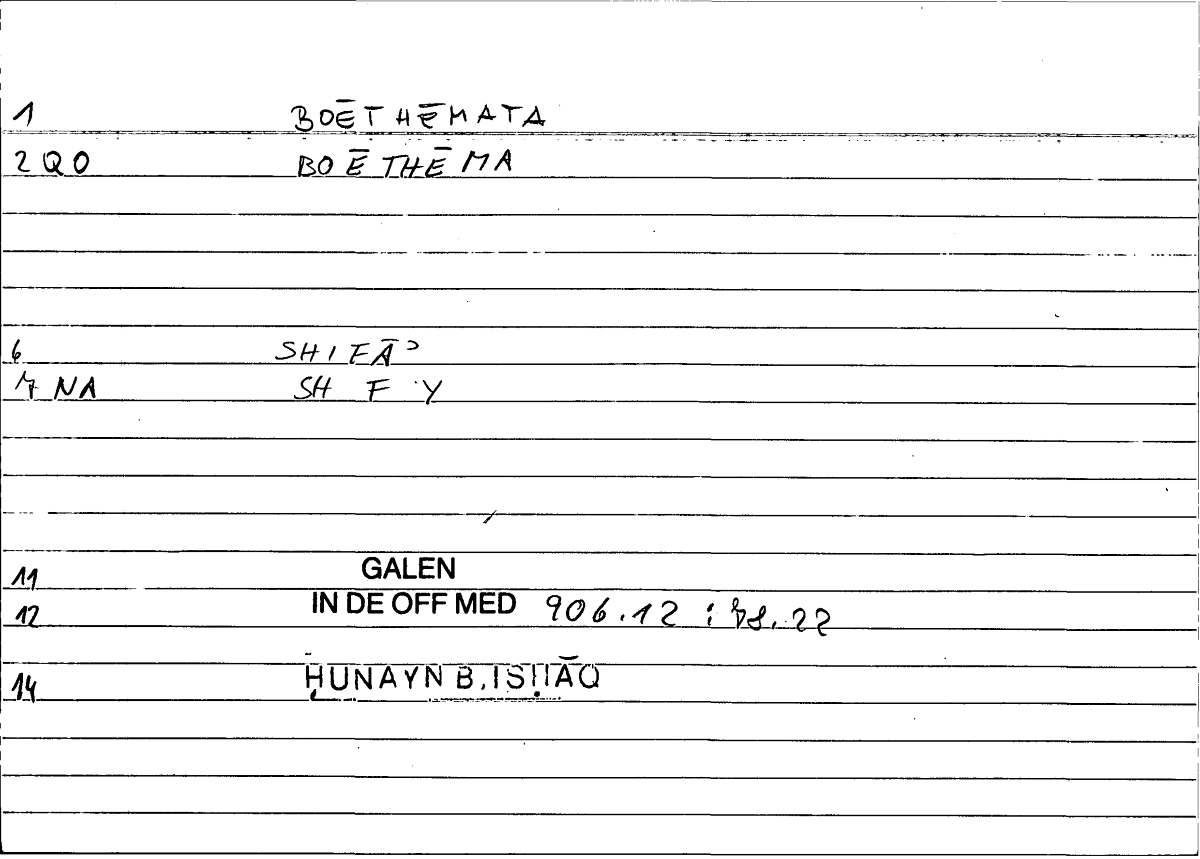 1 BOĒTHĒMATA
2 QO BOĒTHĒMA
6 SHIFĀʾ
7 NA SH F Y
11 GALEN
12 IN DE OFF MED 906.12 :
14 ḤUNAYN B. ISḤĀQ